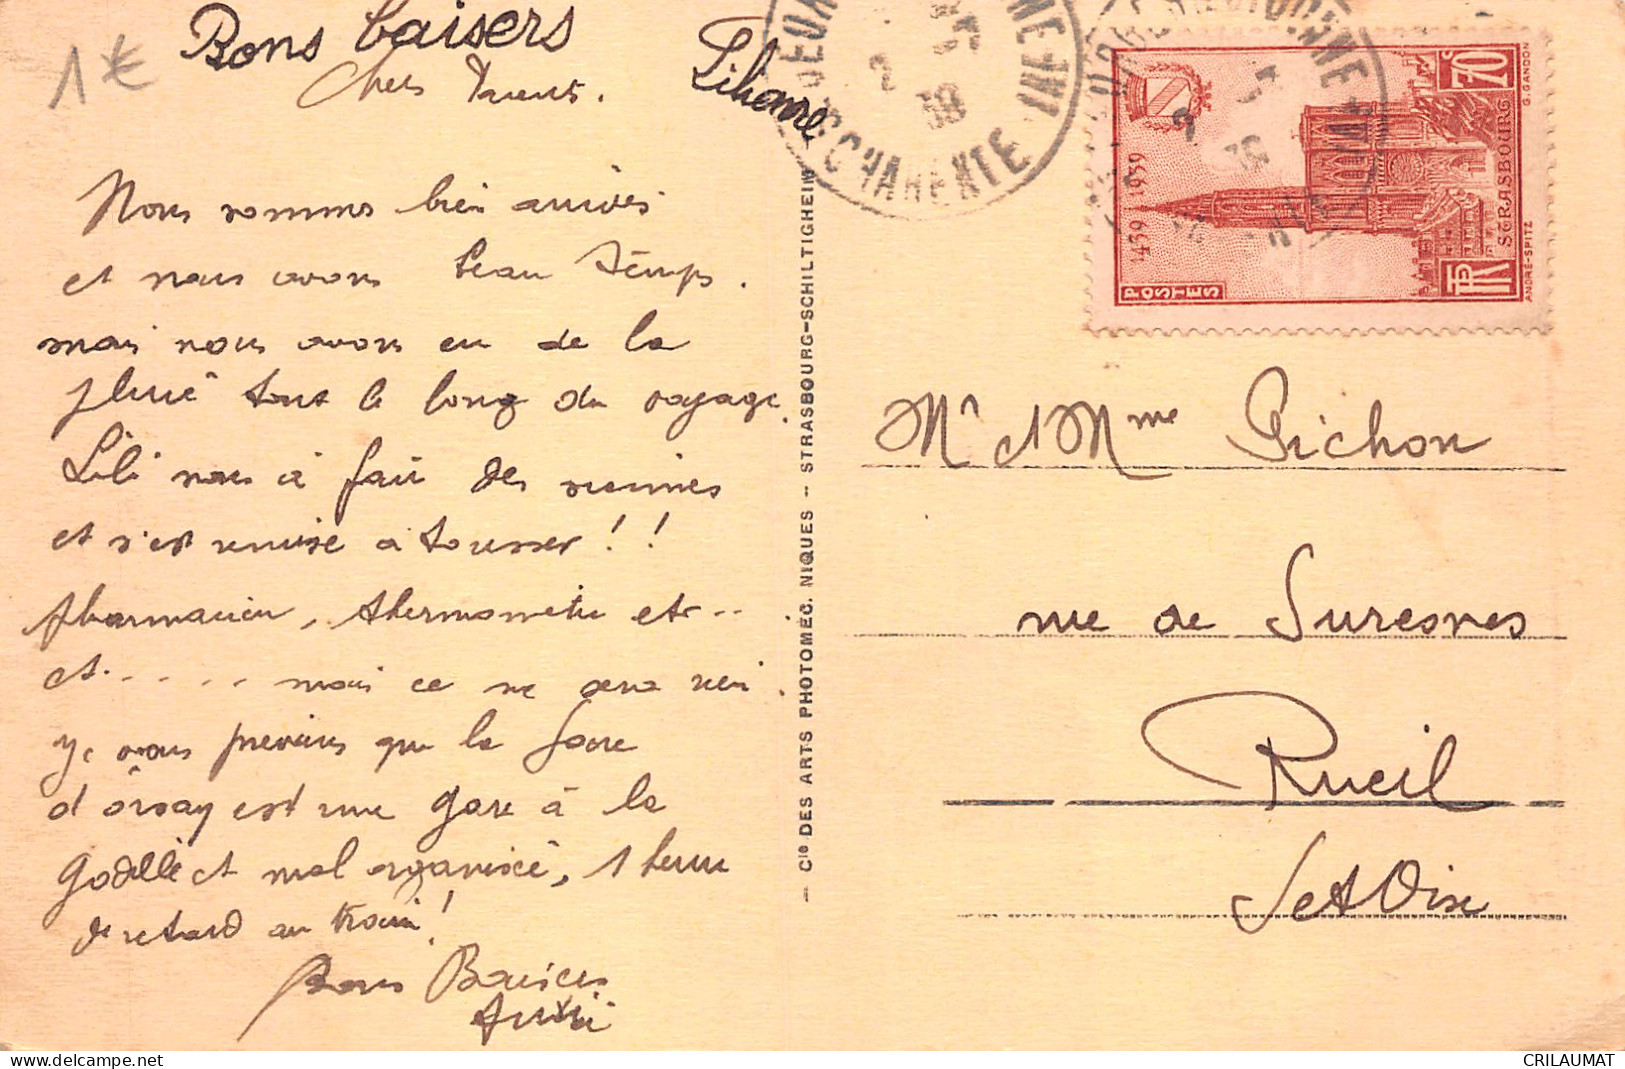 1€
Bons baisers
Liliane
Chers Parents.
Nous sommes bien arrivés
et nous avons beau temps.
mais nous avons eu de la
pluie tout le long du voyage.
Lili nous a fait des misères
et s'est remise à tousser!!
pharmacien, thermomètre etc...
et..... mais ce ne sera rien.
Je vous préviens que la Gare
d'orsay est une gare à la
godille et mal organisée, 1 heure
de retard au train!
Bons Baisers
— Cie DES ARTS PHOTOMÉC. NIQUES — STRASBOURG-SCHILTIGHEIM
2
39
CHARENTE INF
459 1939
POSTES
70c
STRASBOURG
RF
G. GANDON
ANDRÉ-SPITZ
Mr et Mme Pichon
rue de Suresnes
Rueil
S et Oise
CRILAUMAT